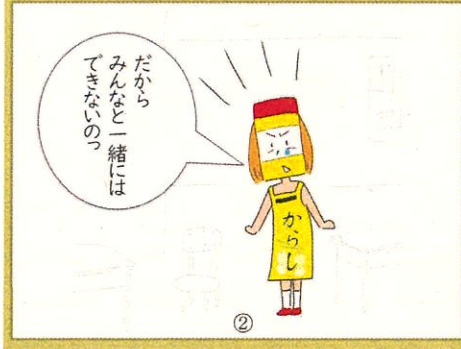 だから
みんなと一緒には
できないのっ
からし
②